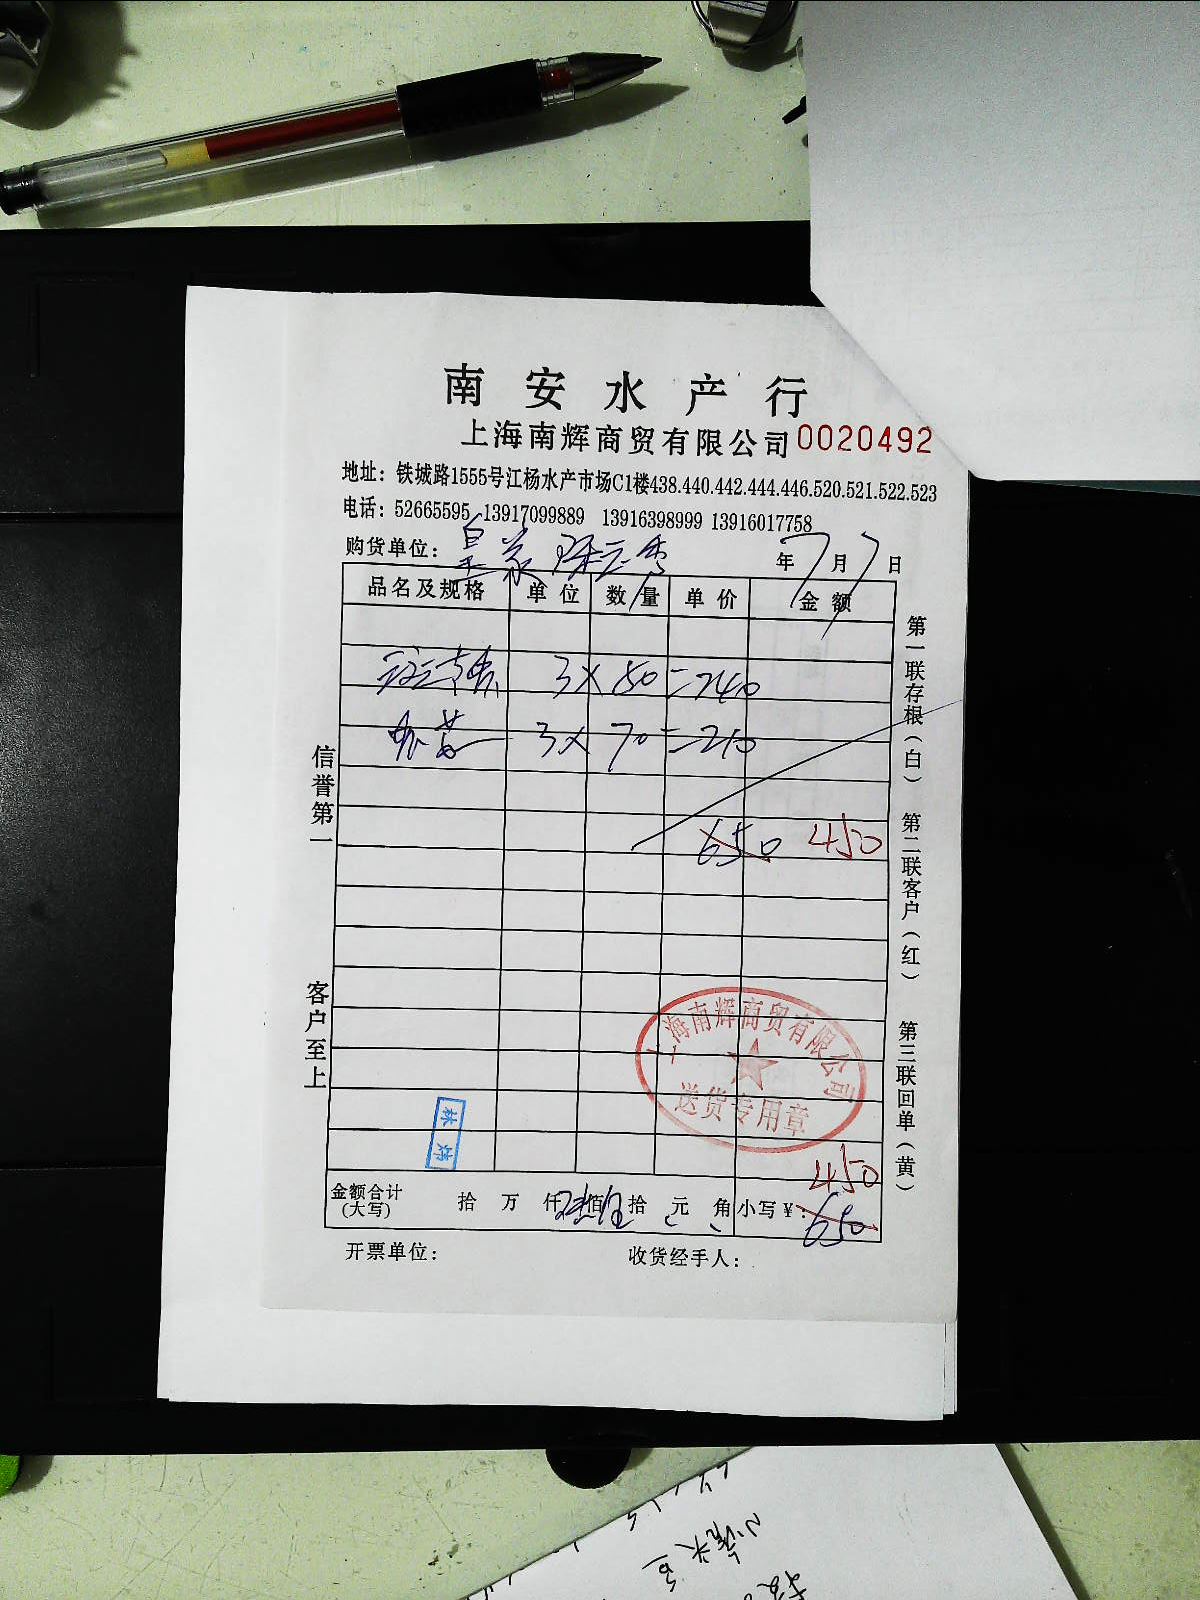 南安水产行
上海南辉商贸有限公司 0020492
地址：铁城路1555号江杨水产市场C1楼438.440.442.444.446.520.521.522.523
电话：52665595 13917099889 13916398999 13916017758
购货单位： 年7月7日
品名及规格 单位 数量 单价 金额
3×80=240
3×70=210
650 450
信誉第一
客户至上
第一联存根（白）
第二联客户（红）
第三联回单（黄）
上海南辉商贸有限公司
送货专用章
450
金额合计（大写） 拾 万 仟 佰 拾 元 角 小写￥： 650
开票单位： 收货经手人：